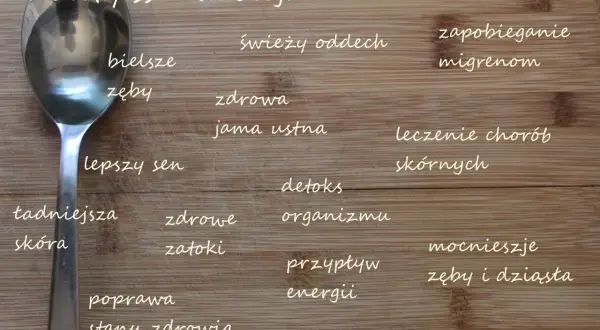 świeży oddech
zapobieganie
migrenom
bielsze
zęby
zdrowa
jama ustna
leczenie chorób
skórnych
lepszy sen
detoks
organizmu
ładniejsza
skóra
zdrowe
zatoki
przypływ
energii
mocnieszje
zęby i dziąsła
poprawa
stanu zdrowia